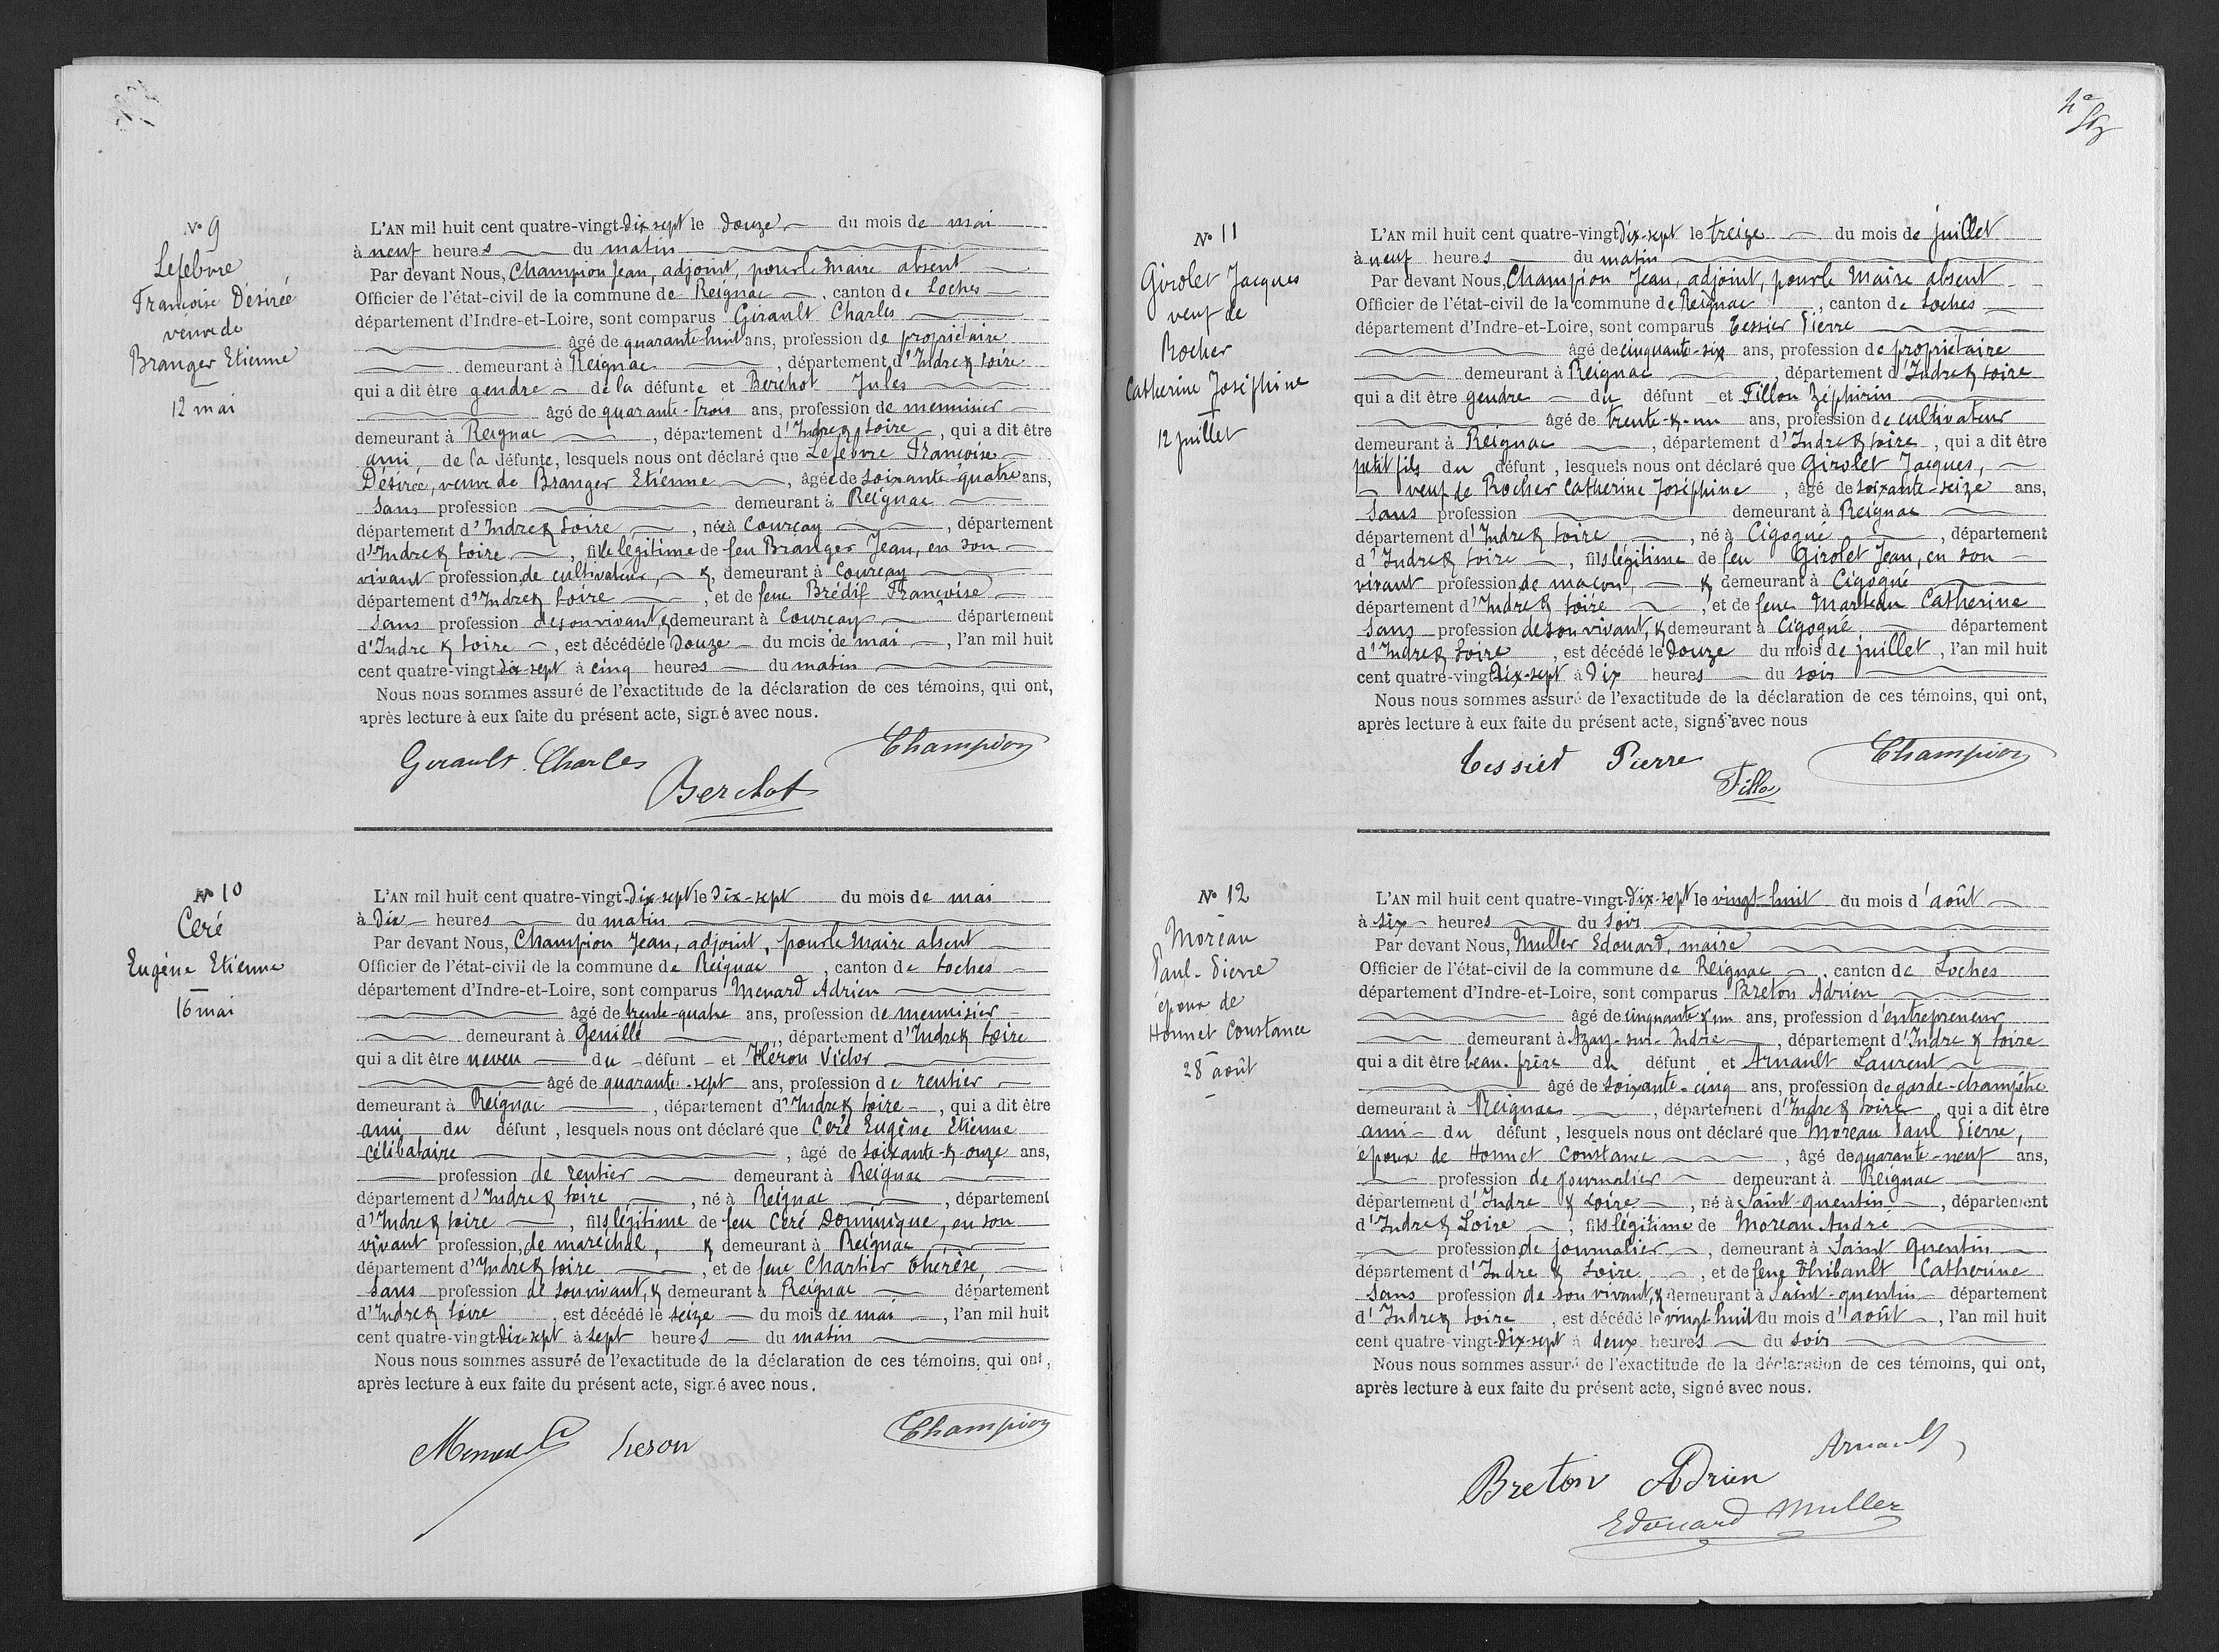 N° 9
Lefebvre
Françoise Désirée
veuve de
Branger Etienne
12 mai
L'AN mil huit cent quatre-vingt-dix-sept le Douze du mois de mai
à neuf heures du matin
Par devant Nous, Champion Jean, adjoint, pour le Maire absent
Officier de l'état-civil de la commune de Reignac, canton de Loches
département d'Indre-et-Loire, sont comparus Girault Charles
âgé de quarante-huit ans, profession de propriétaire
demeurant à Reignac, département d'Indre & Loire
qui a dit être gendre de la défunte et Berchot Jules
âgé de quarante-trois ans, profession de menuisier
demeurant à Reignac, département d'Indre & Loire, qui a dit être
ami de la défunte, lesquels nous ont déclaré que Lefebvre Françoise
Désirée, veuve de Branger Etienne, âgée de soixante-quatre ans,
sans profession demeurant à Reignac
département d'Indre & Loire, née à Courçay, département
d'Indre & Loire, fille légitime de feu Branger Jean, en son
vivant profession de cultivateur, & demeurant à Courçay
département d'Indre & Loire, et de feue Brédif Françoise
sans profession de son vivant, & demeurant à Courçay département
d'Indre & Loire, est décédée le Douze du mois de mai, l'an mil huit
cent quatre-vingt-dix-sept à cinq heures du matin
Nous nous sommes assuré de l'exactitude de la déclaration de ces témoins, qui ont,
après lecture à eux faite du présent acte, signé avec nous.
Girault Charles
Champion
Berchot
N° 10
Ceré
Eugène Etienne
16 mai
L'AN mil huit cent quatre-vingt-Dix-sept le Dix-sept du mois de mai
à Dix heures du matin
Par devant Nous, Champion Jean, adjoint, pour le Maire absent
Officier de l'état-civil de la commune de Reignac, canton de Loches
département d'Indre-et-Loire, sont comparus Menard Adrien
âgé de trente-quatre ans, profession de menuisier
demeurant à Genillé, département d'Indre & Loire
qui a dit être neveu du défunt et Héron Victor
âgé de quarante-sept ans, profession de rentier
demeurant à Reignac, département d'Indre & Loire, qui a dit être
ami du défunt, lesquels nous ont déclaré que Ceré Eugène Etienne
célibataire, âgé de soixante-&-onze ans,
profession de rentier demeurant à Reignac
département d'Indre & Loire, né à Reignac, département
d'Indre & Loire, fils légitime de feu Ceré Dominique, en son
vivant profession, de maréchal, & demeurant à Reignac
département d'Indre & Loire, et de feue Chartier Thérèse,
sans profession de son vivant, & demeurant à Reignac département
d'Indre & Loire, est décédé le seize du mois de mai, l'an mil huit
cent quatre-vingt-Dix-sept à sept heures du matin
Nous nous sommes assuré de l'exactitude de la déclaration de ces témoins, qui ont,
après lecture à eux faite du présent acte, signé avec nous.
Champion
heron
N° 11
Girolet Jacques
veuf de
Rocher
Catherine Joséphine
12 juillet
L'AN mil huit cent quatre-vingt Dix-sept le treize du mois de juillet
à neuf heures du matin
Par devant Nous, Champion Jean, adjoint, pour le Maire absent
Officier de l'état-civil de la commune de Reignac, canton de Loches
département d'Indre-et-Loire, sont comparus Tessier Pierre
âgé de cinquante-six ans, profession de propriétaire
demeurant à Reignac, département d'Indre & Loire
qui a dit être gendre du défunt et Fillon Zéphirin
âgé de trente-&-un ans, profession de cultivateur
demeurant à Reignac, département d'Indre & Loire, qui a dit être
petit fils du défunt, lesquels nous ont déclaré que Girolet Jacques,
veuf de Rocher Catherine Joséphine, âgé de soixante-seize ans,
sans profession demeurant à Reignac
département d'Indre & Loire, né à Cigogné, département
d'Indre & Loire, fils légitime de feu Girolet Jean, en son
vivant profession de maçon, & demeurant à Cigogné
département d'Indre & Loire, et de feue Marteau Catherine
sans profession de son vivant, & demeurant à Cigogné département
d'Indre & Loire, est décédé le Douze du mois de juillet, l'an mil huit
cent quatre-vingt Dix-sept à Dix heures du soir
Nous nous sommes assuré de l'exactitude de la déclaration de ces témoins, qui ont,
après lecture à eux faite du présent acte, signé avec nous
Tessier Pierre
Champion
N° 12
Moreau
Paul-Pierre
époux de
Honnet Constance
28 août
L'AN mil huit cent quatre-vingt-Dix-sept le vingt-huit du mois d'août
à six heures du soir
Par devant Nous, Muller Edouard, maire
Officier de l'état-civil de la commune de Reignac, canton de Loches
département d'Indre-et-Loire, sont comparus Breton Adrien
âgé de cinquante & un ans, profession d'entrepreneur
demeurant à Azay-sur-Indre, département d'Indre & Loire
qui a dit être beau-frère du défunt et Arnault Laurent
âgé de soixante-cinq ans, profession de garde-champêtre
demeurant à Reignac, département d'Indre & Loire, qui a dit être
ami du défunt, lesquels nous ont déclaré que Moreau Paul Pierre,
époux de Honnet Constance, âgé de quarante-neuf ans,
profession de journalier demeurant à Reignac
département d'Indre & Loire, né à Saint-Quentin, département
d'Indre & Loire, fils légitime de Moreau André
profession de journalier, demeurant à Saint Quentin
département d'Indre & Loire, et de feue Thibault Catherine
sans profession de son vivant, & demeurant à Saint-Quentin département
d'Indre & Loire, est décédé le vingt-huit du mois d'août, l'an mil huit
cent quatre-vingt-Dix-sept à deux heures du soir
Nous nous sommes assuré de l'exactitude de la déclaration de ces témoins, qui ont,
après lecture à eux faite du présent acte, signé avec nous.
Arnault
Breton Adrien
Edouard Muller